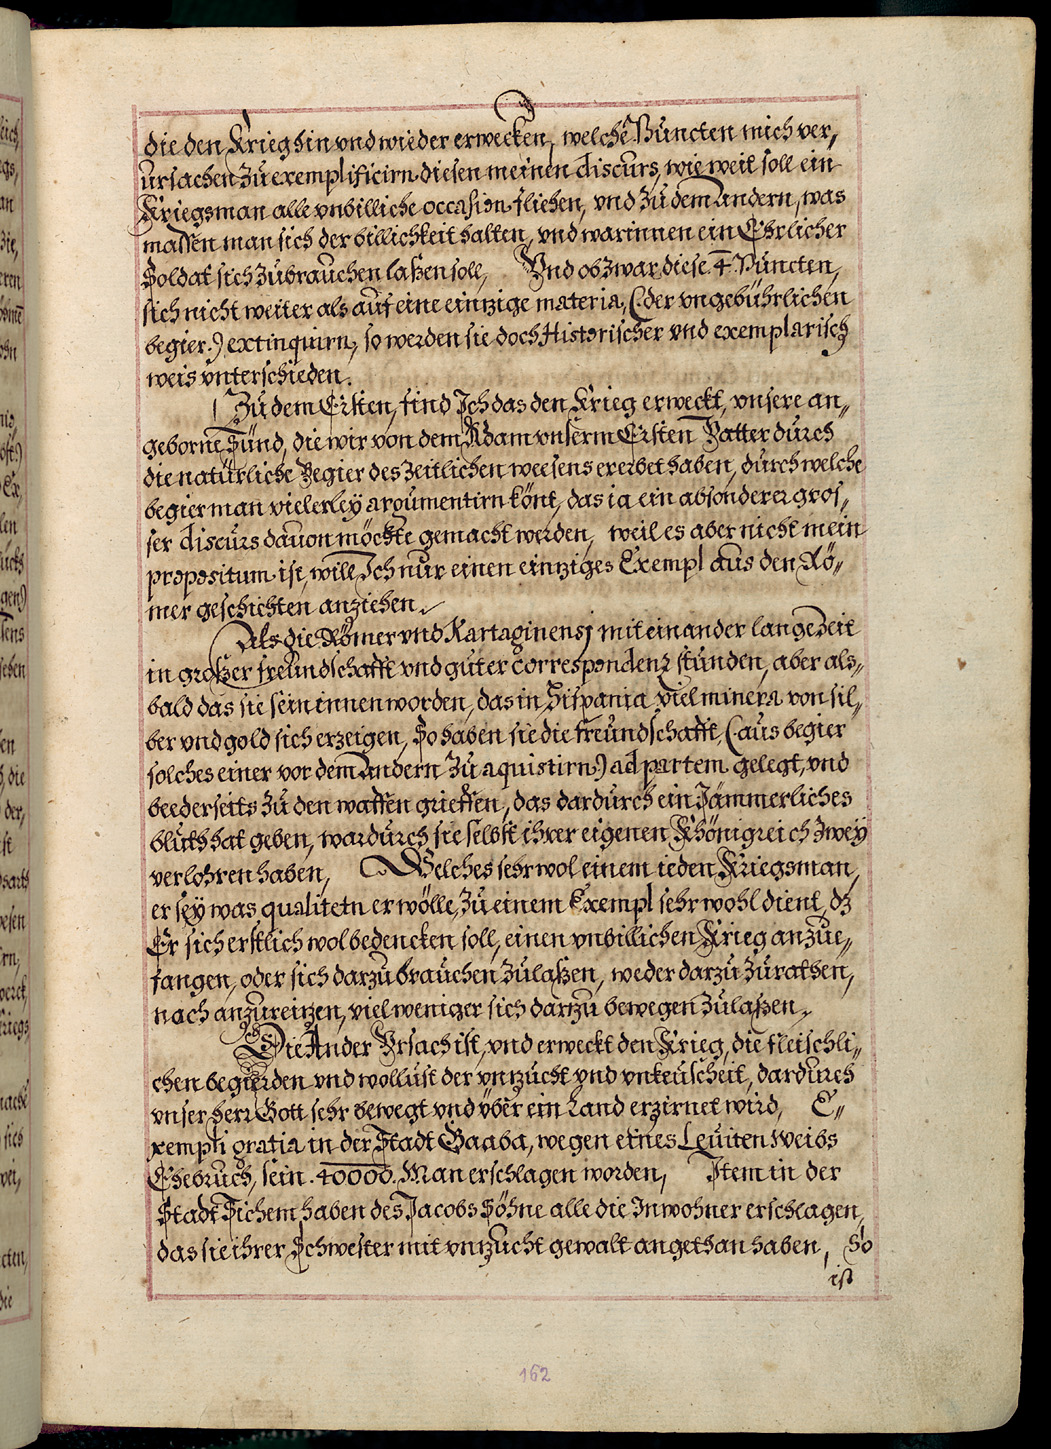 die den Krieg hin vnd wieder erwecken, welche Puncten mich ver,,
ursachen zu exemplificirn diesen meinen discurs, wie weit soll ein
Kriegsman alle vnbilliche occasion fliehen, vnd zu dem andern, was
massen man sich der billichkeit halten, vnd warinnen ein Ehrlicher
Soldat sich zubrauchen laßen soll, Vnd ob zwar diese .4. Puncten,
sich nicht weiter als auf eine einzige materia, (:der vngebührlichen
begier:) extinquirn, so werden sie doch Historischer vnd exemplarisch
weis vnterschieden.
Zu dem Ersten, find Ich das den Krieg erweckt, vnsere an,,
geborne Sünd, die wir von dem Adam vnserm Ersten Vatter durch
die natürliche Begier des Zeitlichen weesens ererbet haben, durch welche
begier man vielerley argumentirn könt, das ia ein absonderer gros,,
ser discurs dauon möchte gemacht werden, weil es aber nicht mein
propositum ist, will Ich nur einen einziges Exempl aus den Rö,,
mer geschichten anziehen.
Als die Römer vnd Kartaginensj mit einander lange Zeit
in großer freundschafft vnd guter correspondenz stunden, aber als,,
bald das sie sein innen worden, das in Hispania viel minera von sil,,
ber vnd gold sich erzeigen, So haben sie die freundschafft, (:aus begier
solches einer vor dem andern zu aquistirn:) ad partem gelegt, vnd
beederseits zu den waffen grieffen, das dardurch ein Jämmerliches
blutbat geben, wardurch sie selbst ihrer eigenen Khönigreich zwey
verlohren haben, Welches sehr wol einem ieden Kriegsman,
er seÿ was qualitetn er wölle, zu einem Exempl sehr wohl dient, dz
Er sich erstlich wol bedencken soll, einen vnbillichen Krieg anzue,,
fangen, oder sich darzu brauchen zulaßen, weder darzu zurathen,
nach anzureitzen, viel weniger sich darzu bewegen zulaßen.
Die Ander Vrsach ist, vnd erweckt den Krieg, die fleischli,,
chen begierden vnd wollust der vnzucht vnd vnkeuscheit, dardurch
vnser herr Gott sehr bewegt vnd über ein Land erzirnet wird, E,,
xempli gratia in der Stadt Gaaba, wegen eines Leuiten Weibs
Ehebruch, sein .40000. Man erschlagen worden, Item in der
Stadt Sichem haben des Jacobs Söhne alle die Inwohner erschlagen,
das sie ihrer Schwester mit vnzucht gewalt angethan haben, So
ist
162